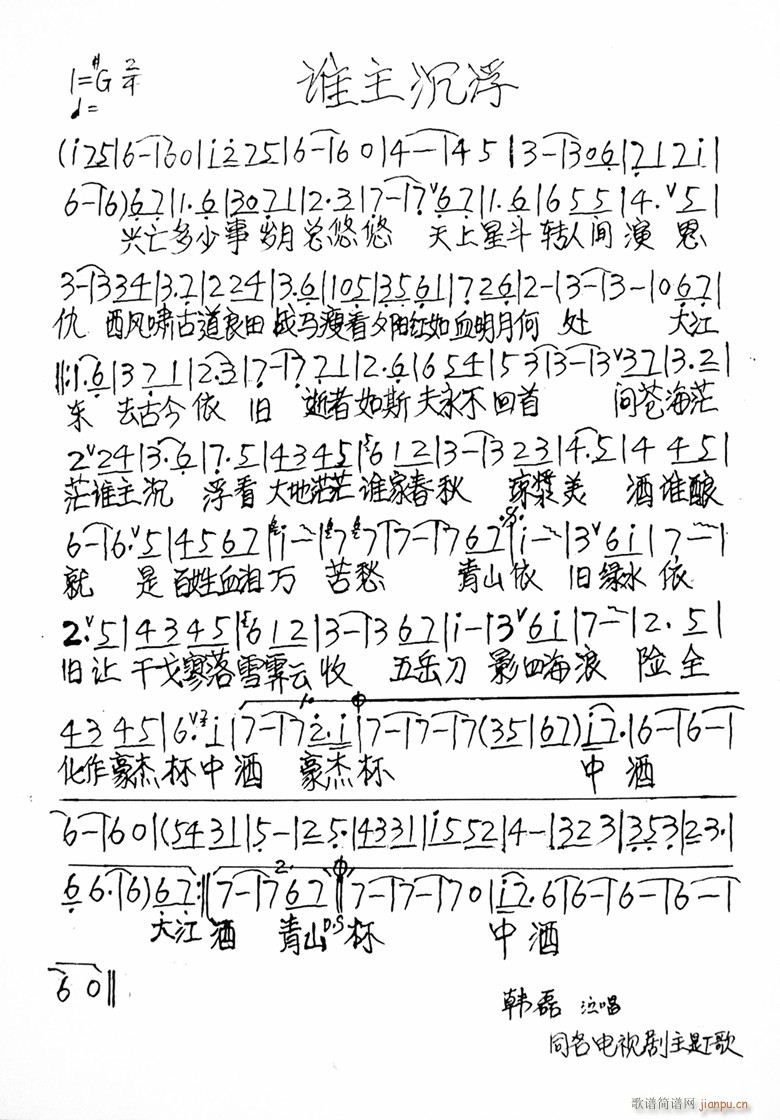 1=#G 2/4
谁主沉浮
♩=
(i 2 7 5|6-|6 0|i 2 7 5|6-|6 0|4-|4 5|3-|3 0 6|7 1 7 i|
6-|6)6 7|1.6|3 0 7 1|2.3|7-|7 ∨6 7|1.6|6 5 5|4.∨5|
兴亡多少事 岁月总悠悠 天上星斗转人间演恩
3-|3 3 4|3.7|2 2 4|3.6|1 0 5|3 5 6 1|7 2 6|2-|3-|3-|0 6 7|
仇 西风啸古道良田战马瘦看夕阳红如血明月何处 大江
‖:1.6|3 7 1|2.3|7-|7 7 1|2.6|6 5 4|5 3|3-|3∨3 7|3.2|
东 去古今依旧 逝者如斯夫永不回首 问苍海茫
2∨2 4|3.6|7.5|4 3 4 5|6 1 2|3-|3 2 3|4.5|4 4 5|
茫谁主沉 浮看大地茫茫谁家春秋 琼浆美 酒谁酿
6-|6.∨5|4 5 6 7|i-|7 7|7-|7 6 7|i-|3∨6 i|7-|
就 是百姓血泪万苦愁 青山依旧绿水依
2.∨5|4 3 4 5|6 1 2|3-|3 6 7|i-|3∨6 i|7-|2.5|
旧让干戈寥落雪霁云收 五岳刀影四海浪险全
4 3 4 5|6.∨i|7-|7 2.i|7-|7-|7(3 5|6 7)i 7.|6-|6-|
化作豪杰杯中酒 豪杰杯 中酒
6-|6 0|(5 4 3 1|5-|2 5.|4 3 3 1|i 5 5 2|4-|3 2 3|3 5 3|2 3.|
6 6.|6)6 7:‖7-|7 6 7‖7-|7-|7 0|i 7.6|6-|6-|6-|
大江酒 青山D.S杯 中酒
6 0‖
韩磊 演唱
同名电视剧主题歌
歌谱简谱网
jianpu.cn